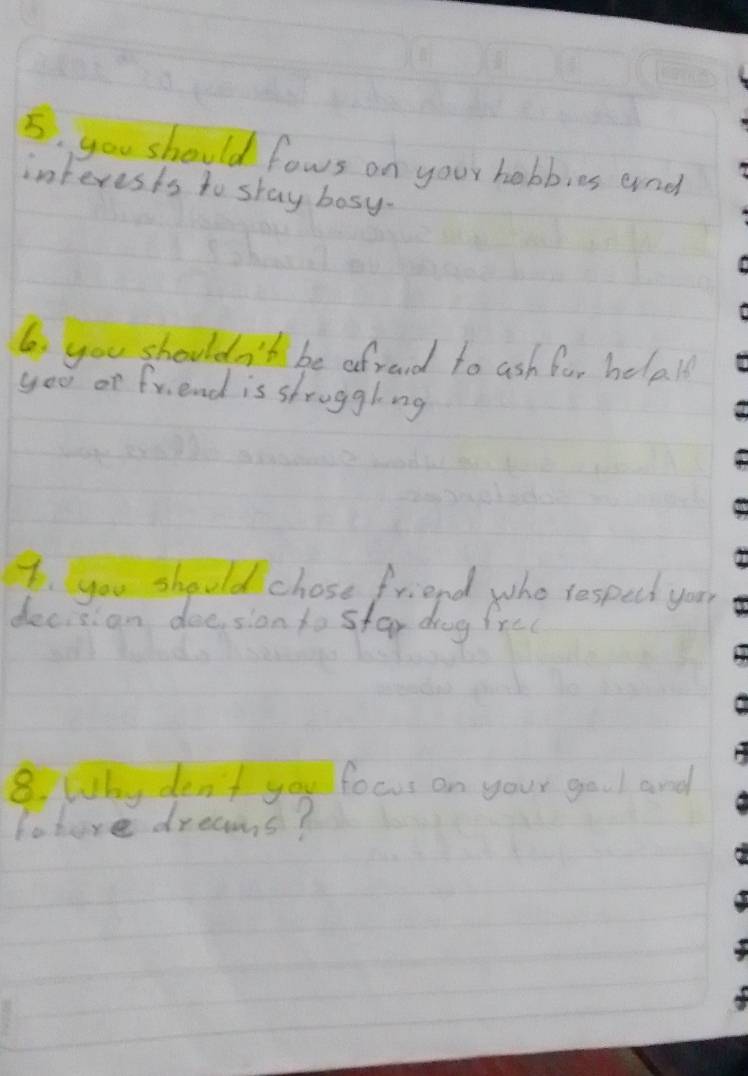 5. you should fows on your hobbies and
interests to stay bosy.
6. you shouldn't be afraid to ash for help if
you or friend is struggling
7. you should chose friend who respect your
decision decision to stay drug free
8. Why don't you focus on your goul and
future dreams?